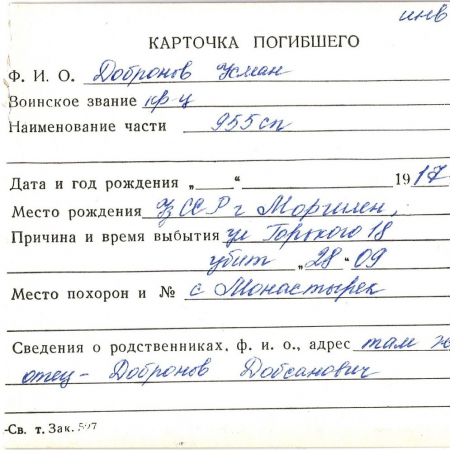 инв
КАРТОЧКА ПОГИБШЕГО
Ф. И. О. Добронов Усман
Воинское звание кр-ц
Наименование части 955сп
Дата и год рождения „ “ 1917
Место рождения УзССР г Моргилен,
Причина и время выбытия ул Горького 18
убит „28“ 09
Место похорон и № с Монастырек
Сведения о родственниках, ф. и. о., адрес там ж
отец - Добронов Добсанович
-Св. т. Зак. 597